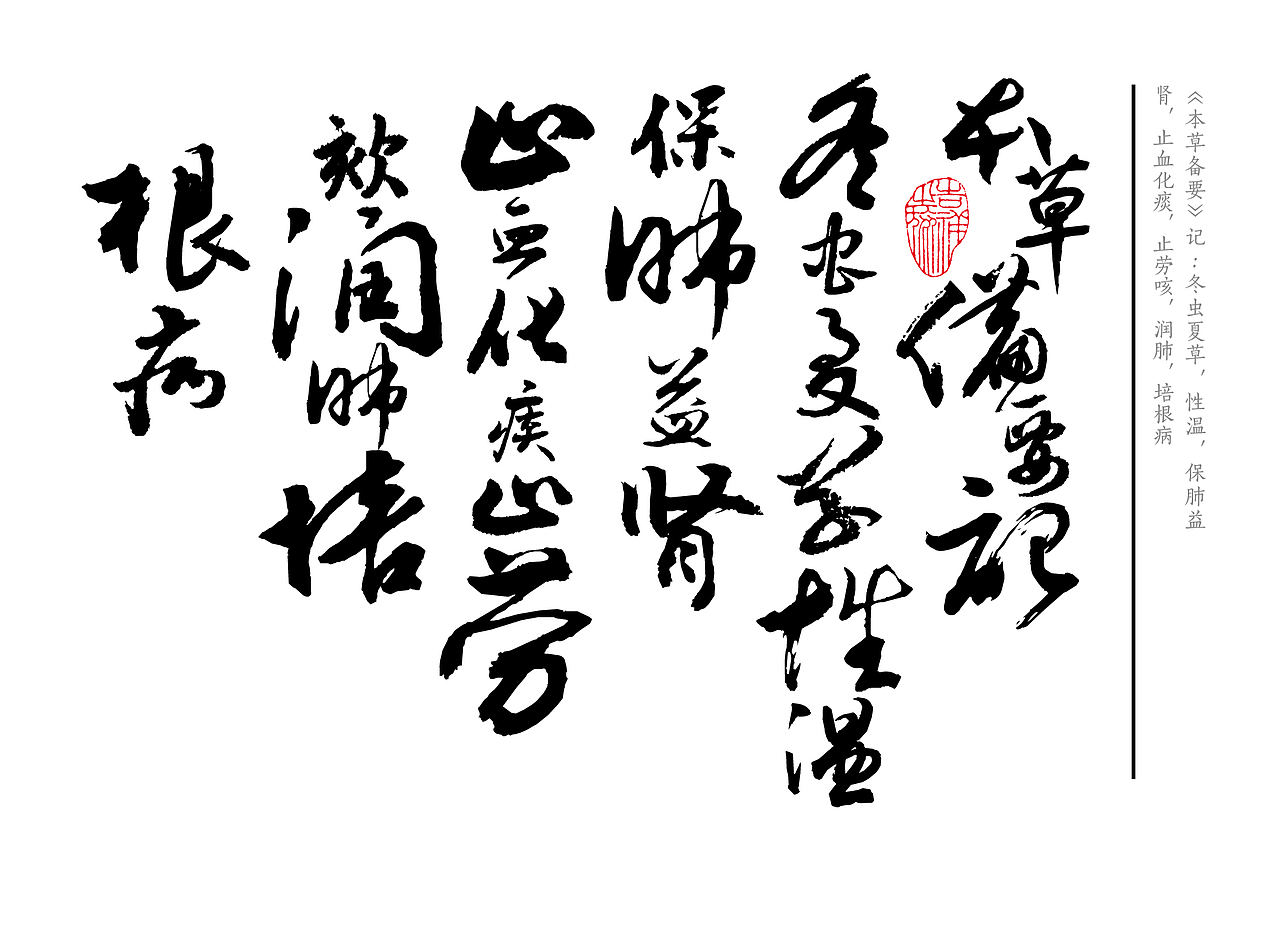 《本草备要》记：冬虫夏草，性温，保肺益
肾，止血化痰，止劳咳，润肺，培根病
本草備要記
冬虫夏草性温
保肺益肾
止血化痰止劳
欬润肺培
根病